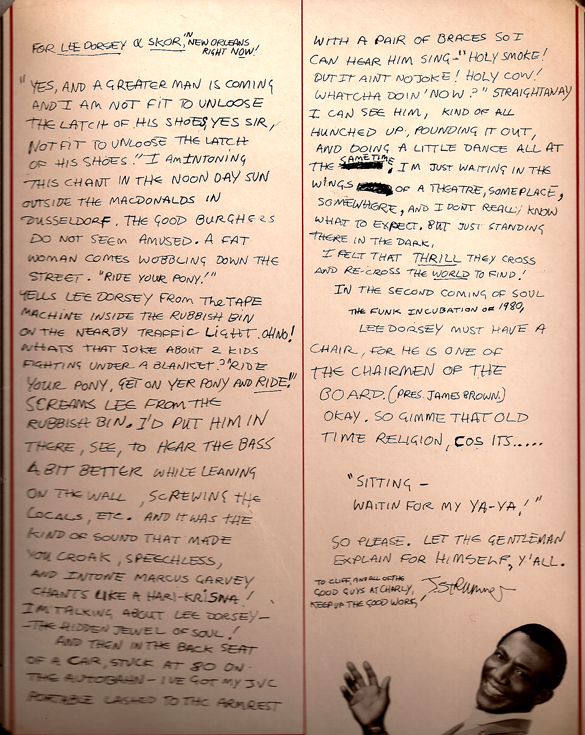 FOR LEE DORSEY & SKOR, IN NEW ORLEANS
RIGHT NOW!
"YES, AND A GREATER MAN IS COMING
AND I AM NOT FIT TO UNLOOSE
THE LATCH OF HIS SHOES, YES SIR,
NOT FIT TO UNLOOSE THE LATCH
OF HIS SHOES." I AM INTONING
THIS CHANT IN THE NOON DAY SUN
OUTSIDE THE MACDONALDS IN
DUSSELDORF. THE GOOD BURGHERS
DO NOT SEEM AMUSED. A FAT
WOMAN COMES WOBBLING DOWN THE
STREET. "RIDE YOUR PONY!"
YELLS LEE DORSEY FROM THE TAPE
MACHINE INSIDE THE RUBBISH BIN
ON THE NEARBY TRAFFIC LIGHT. OH NO!
WHATS THAT JOKE ABOUT 2 KIDS
FIGHTING UNDER A BLANKET? "RIDE
YOUR PONY, GET ON YER PONY AND RIDE!"
SCREAMS LEE FROM THE
RUBBISH BIN. I'D PUT HIM IN
THERE, SEE, TO HEAR THE BASS
A BIT BETTER WHILE LEANING
ON THE WALL, SCREWING THE
LOCALS, ETC. AND IT WAS THE
KIND OF SOUND THAT MADE
YOU CROAK, SPEECHLESS,
AND INTONE MARCUS GARVEY
CHANTS LIKE A HARI-KRISNA!
I'M TALKING ABOUT LEE DORSEY -
- THE HIDDEN JEWEL OF SOUL!
AND THEN IN THE BACK SEAT
OF A CAR, STUCK AT 80 ON
THE AUTOBAHN - I'VE GOT MY JVC
PORTABLE LASHED TO THE ARMREST
WITH A PAIR OF BRACES SO I
CAN HEAR HIM SING - "HOLY SMOKE!
BUT IT AINT NO JOKE! HOLY COW!
WHATCHA DOIN' NOW?" STRAIGHTAWAY
I CAN SEE HIM, KIND OF ALL
HUNCHED UP, POUNDING IT OUT,
AND DOING A LITTLE DANCE ALL AT
THE SAME TIME, I'M JUST WAITING IN THE
WINGS OF A THEATRE, SOMEPLACE,
SOMEWHERE, AND I DONT REALLY KNOW
WHAT TO EXPECT. BUT JUST STANDING
THERE IN THE DARK,
I FELT THAT THRILL THEY CROSS
AND RE-CROSS THE WORLD TO FIND!
IN THE SECOND COMING OF SOUL
THE FUNK INCUBATION OF 1980,
LEE DORSEY MUST HAVE A
CHAIR, FOR HE IS ONE OF
THE CHAIRMEN OF THE
BOARD. (PRES. JAMES BROWN.)
OKAY. SO GIMME THAT OLD
TIME RELIGION, COS ITS.....
"SITTING -
WAITIN FOR MY YA-YA!"
SO PLEASE. LET THE GENTLEMAN
EXPLAIN FOR HIMSELF, Y'ALL.
TO CLIFF, AND ALL OF THE
GOOD GUYS AT CHARLY,
KEEP UP THE GOOD WORK,
J. Strummer